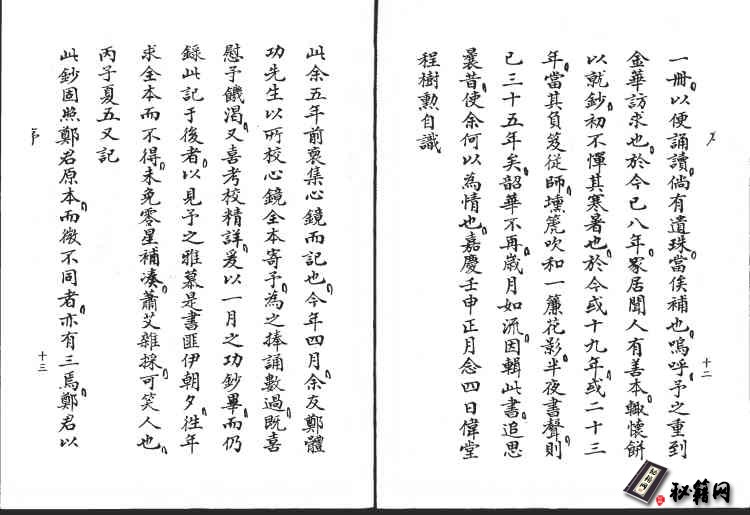 一冊以便誦讀倘有遺珠當俟補也嗚呼予之重到
金華訪求也於今已八年家居聞人有善本輒懷餅
以就鈔初不憚其寒暑也於今或十九年或二十三
年當其負笈從師壎箎吹和一簾花影半夜書聲則
已三十五年矣韶華不再歲月如流因輯此書追思
曩昔使余何以為情也嘉慶壬申正月念四日偉堂
程樹勲自識
十二
此余五年前裒集心鏡而記也今年四月余友鄭體
功先生以所校心鏡全本寄予為之捧誦數過既喜
慰予饑渴又喜考校精詳爰以一月之功鈔畢而仍
錄此記于後者以見予之雅慕是書匪伊朝夕徃年
求全本而不得未免零星補凑蕭艾雜採可笑人也
丙子夏五又記
此鈔固照鄭君原本而微不同者亦有三焉鄭君以
十三
秘籍网